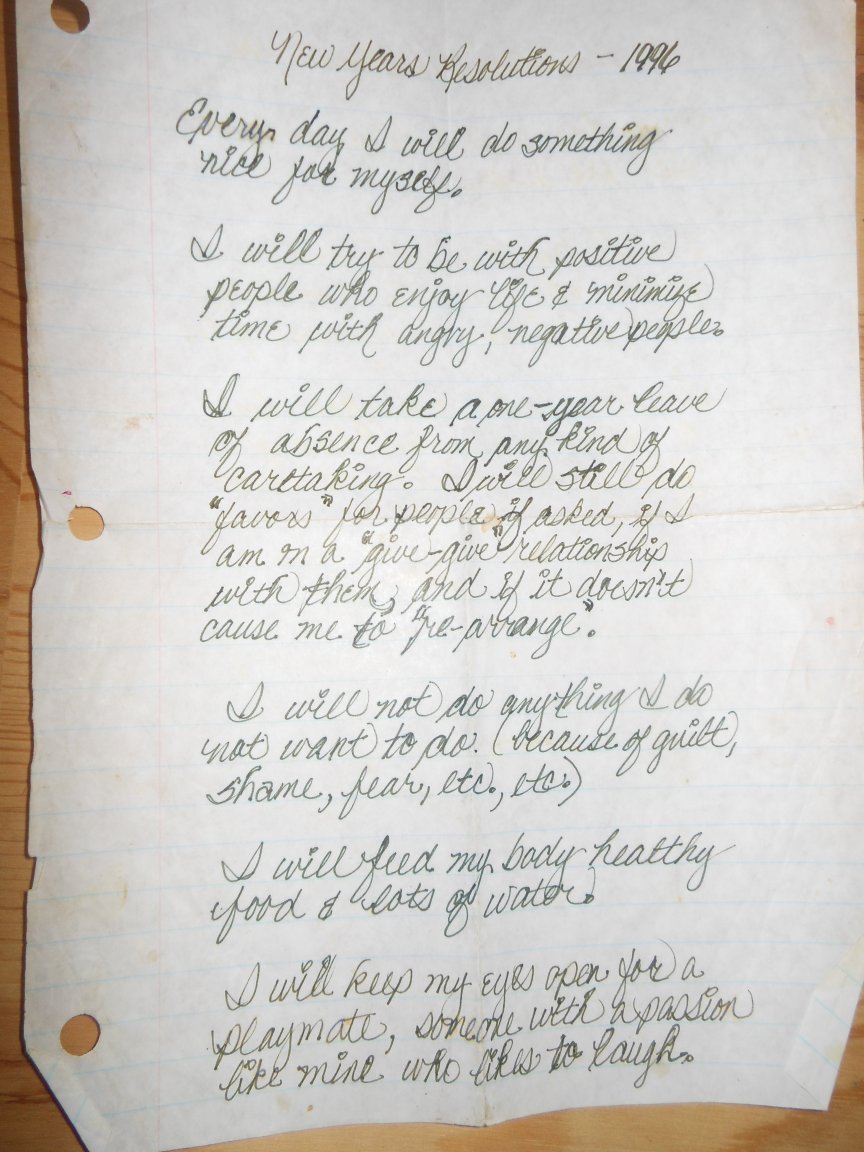 New Years Resolutions - 1996
Every day I will do something
nice for myself.
I will try to be with positive
people who enjoy life & minimize
time with angry, negative people.
I will take a one-year leave
of absence from any kind of
caretaking. I will still do
"favors" for people if asked, if I
am in a "give-give" relationship
with them, and if it doesn't
cause me to "re-arrange".
I will not do anything I do
not want to do. (because of guilt,
shame, fear, etc., etc.)
I will feed my body healthy
food & lots of water.
I will keep my eyes open for a
playmate, someone with a passion
like mine who likes to laugh.